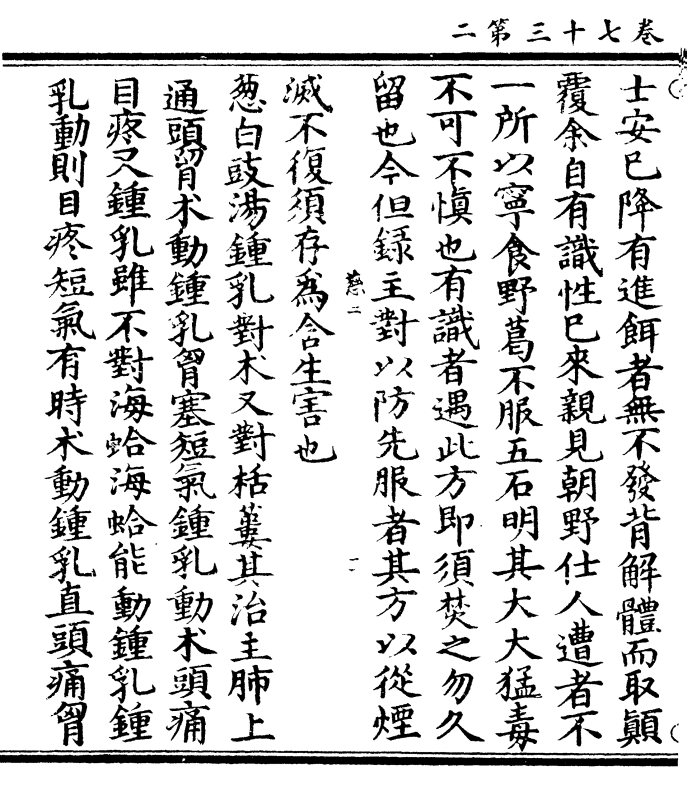 卷七十三第二
士安已降有進餌者無不發背解體而取顚
覆余自有識性已來親見朝野仕人遭者不
一所以寧食野葛不服五石明其大大猛毒
不可不愼也有識者遇此方即須焚之勿久
留也今但錄主對以防先服者其方以從煙
滅不復須存爲含生害也
葱白豉湯鍾乳對术又對栝蔞其治主肺上
通頭胷术動鍾乳胷塞短氣鍾乳動术頭痛
目疼又鍾乳雖不對海蛤海蛤能動鍾乳鍾
乳動則目疼短氣有時术動鍾乳直頭痛胷